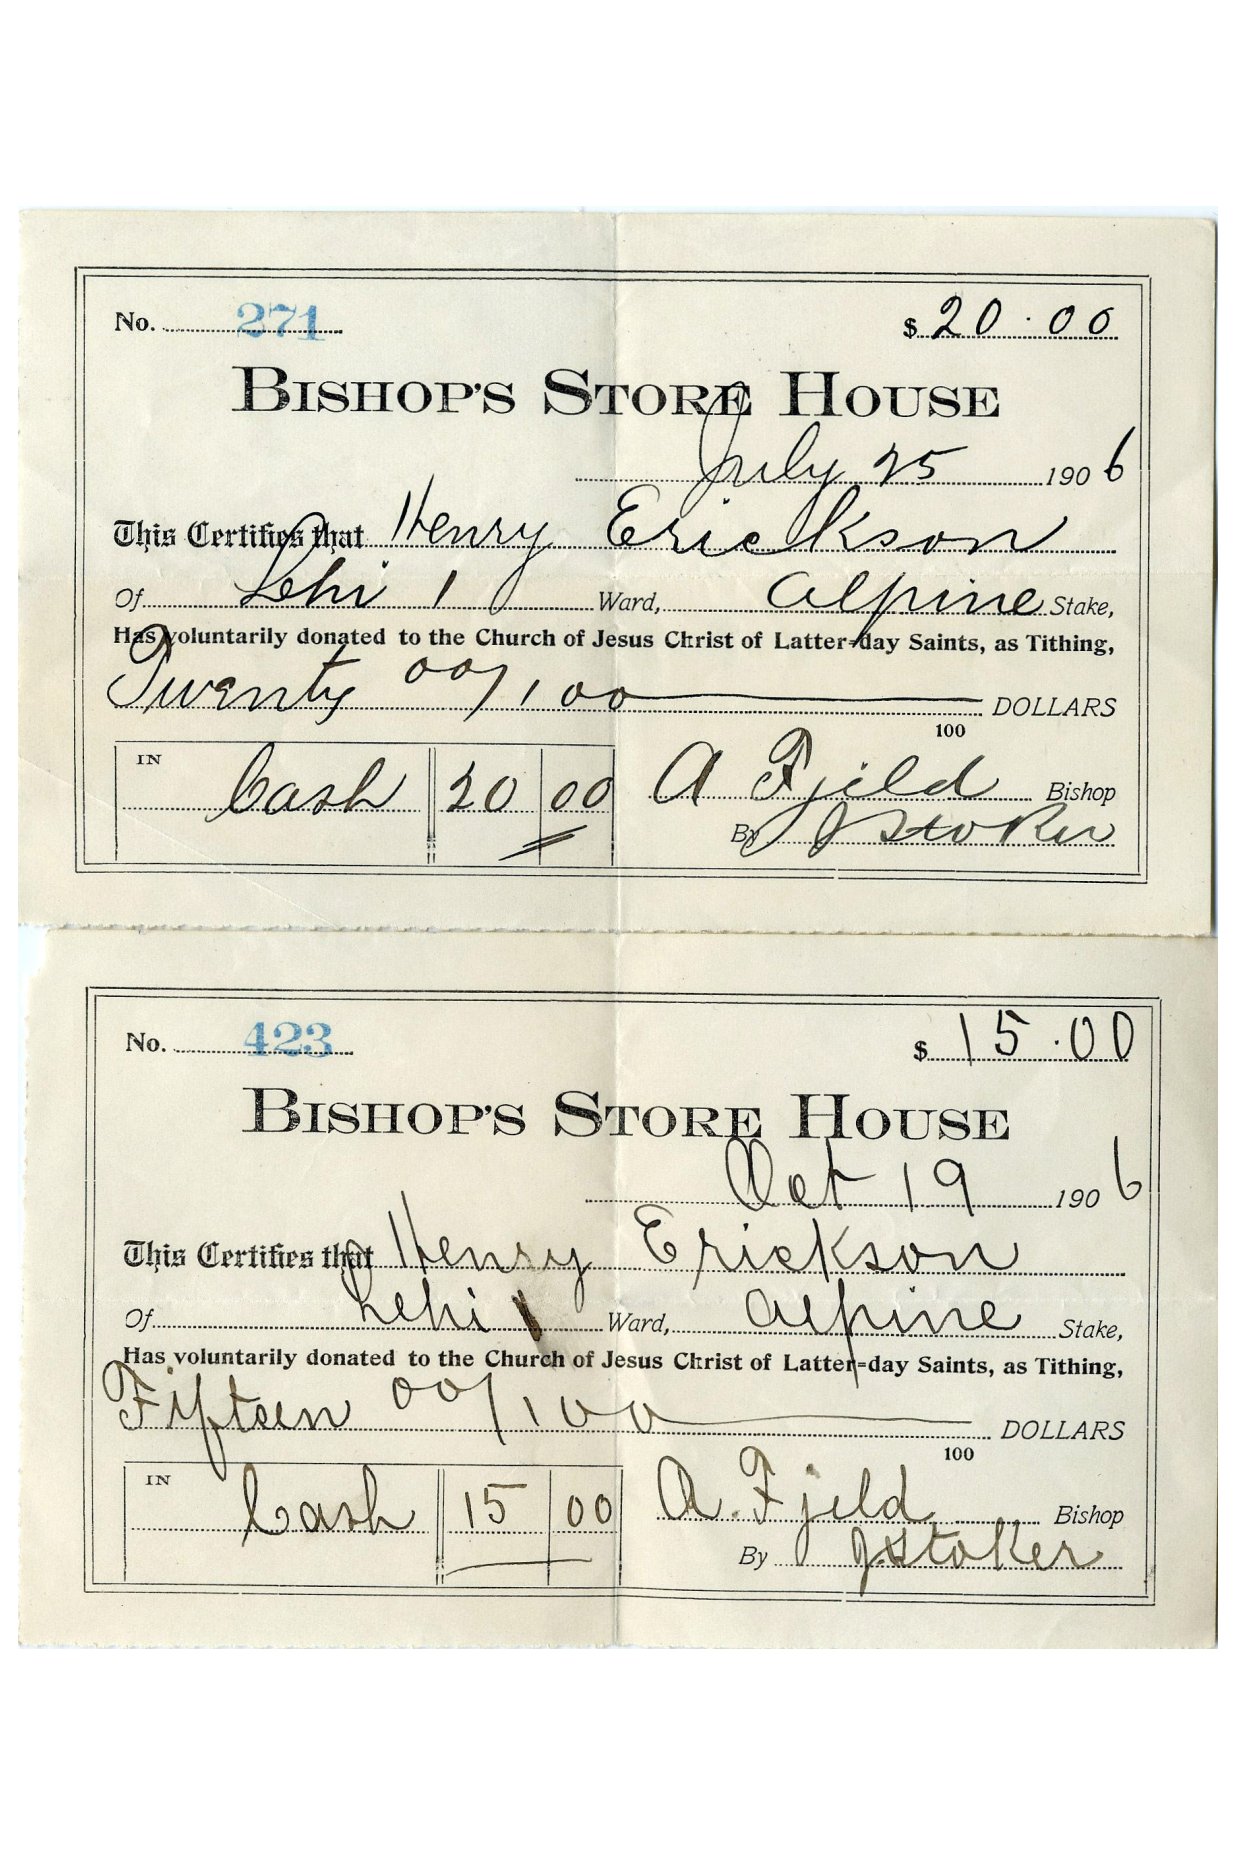 No. 271 $ 20.00
BISHOP'S STORE HOUSE
July 25 1906
This Certifies that Henry Erickson
Of Lehi 1 Ward, Alpine Stake,
Has voluntarily donated to the Church of Jesus Christ of Latter-day Saints, as Tithing,
Twenty 00/100 DOLLARS
100
IN Cash 20 00 A Fjeld Bishop
By J Stoker
No. 423 $ 15.00
BISHOP'S STORE HOUSE
Oct 19 1906
This Certifies that Henry Erickson
Of Lehi 1 Ward, Alpine Stake,
Has voluntarily donated to the Church of Jesus Christ of Latter-day Saints, as Tithing,
Fifteen 00/100 DOLLARS
100
IN Cash 15 00 A. Fjeld Bishop
By J Stoker